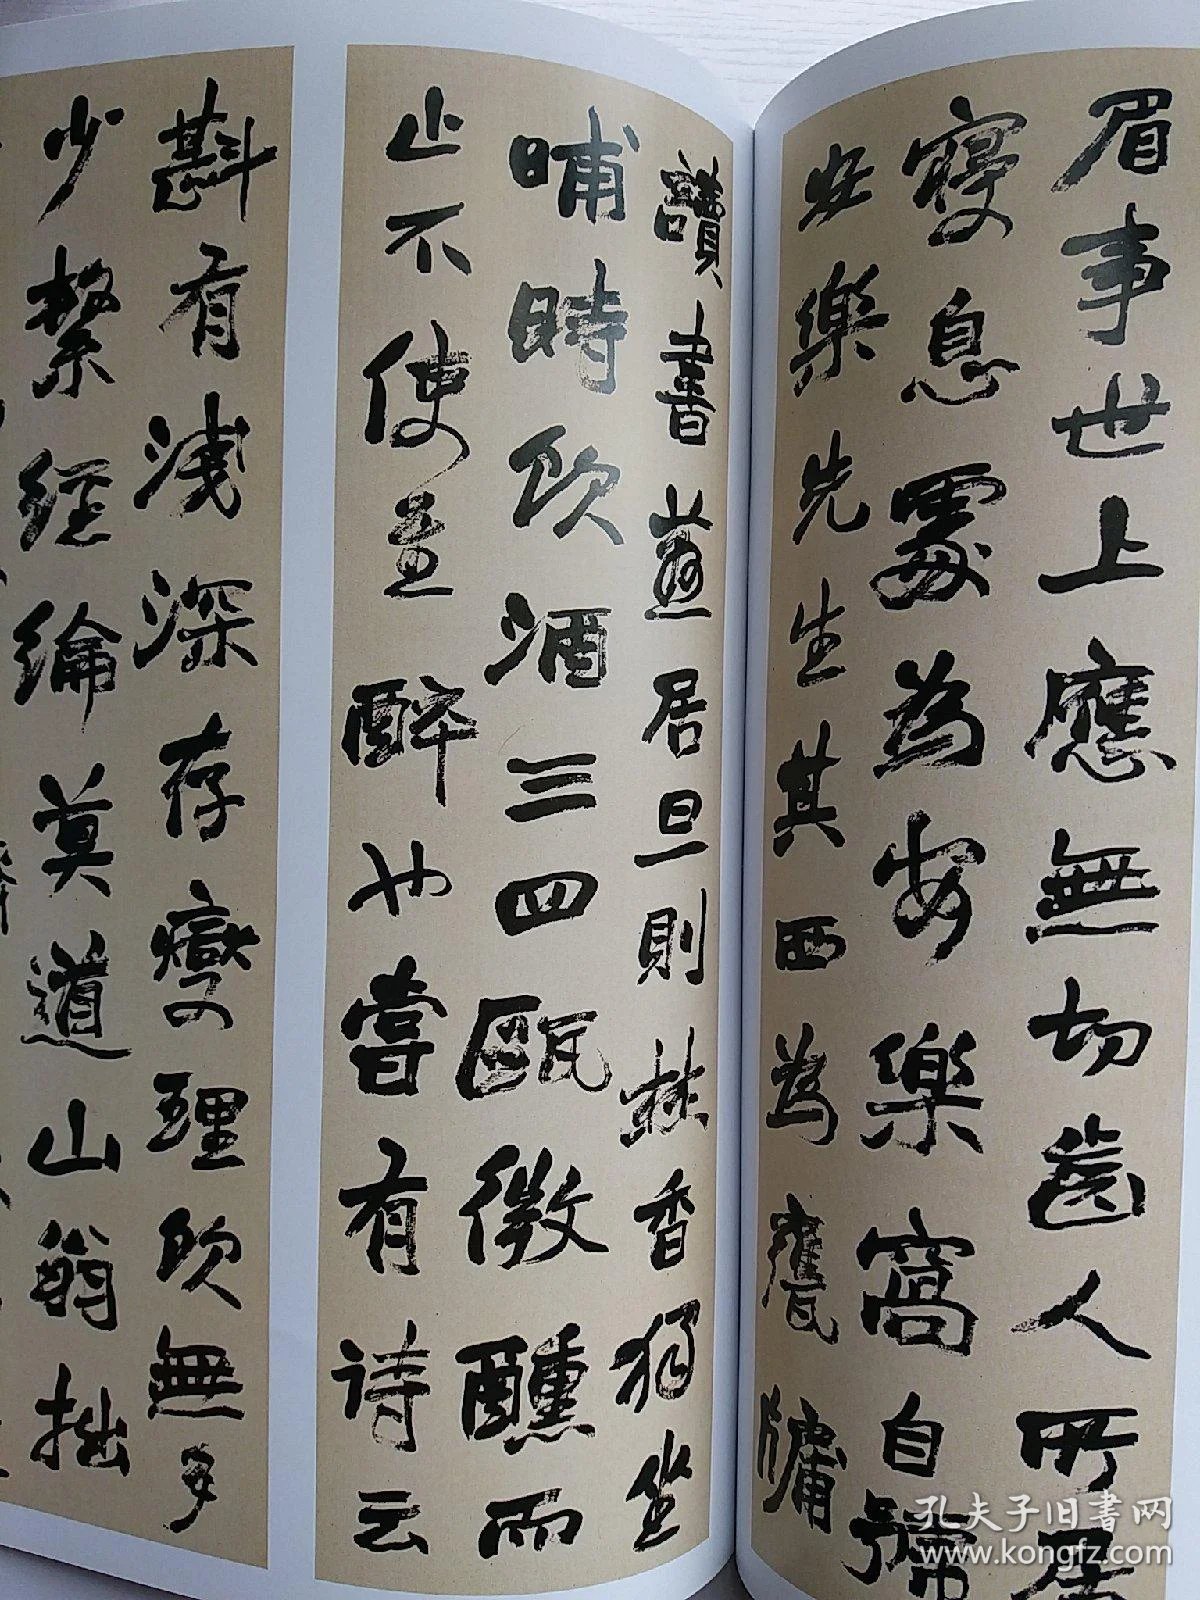 眉事世上應無切齒人所居
寝息處為安樂窩自號
安樂先生其西為甕牖
讀書燕居旦則焚香獨坐
哺時飲酒三四甌微醺而
止不使至醉也嘗有詩云
斟有淺深存燮理飲無多
少繫經綸莫道山翁拙
孔夫子旧書网
www.kongfz.com